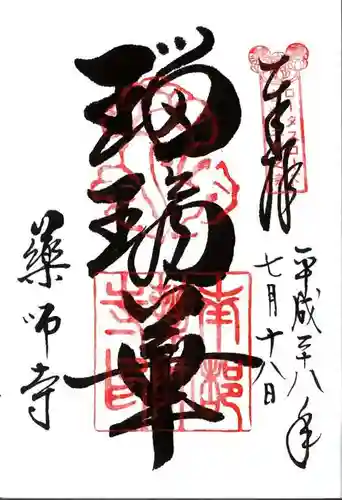 奉拝
平成二十八年
七月十八日
瑠璃華
薬師寺
南都